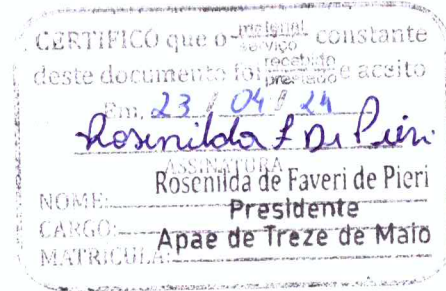 CERTIFICO que o material serviço constante
deste documento foi recebido prestado e aceito
Em, 23 / 04 / 24
Rosenilda F Di Pieri
ASSINATURA
NOME: Rosenilda de Faveri de Pieri
CARGO: Presidente
MATRICULA: Apae de Treze de Maio